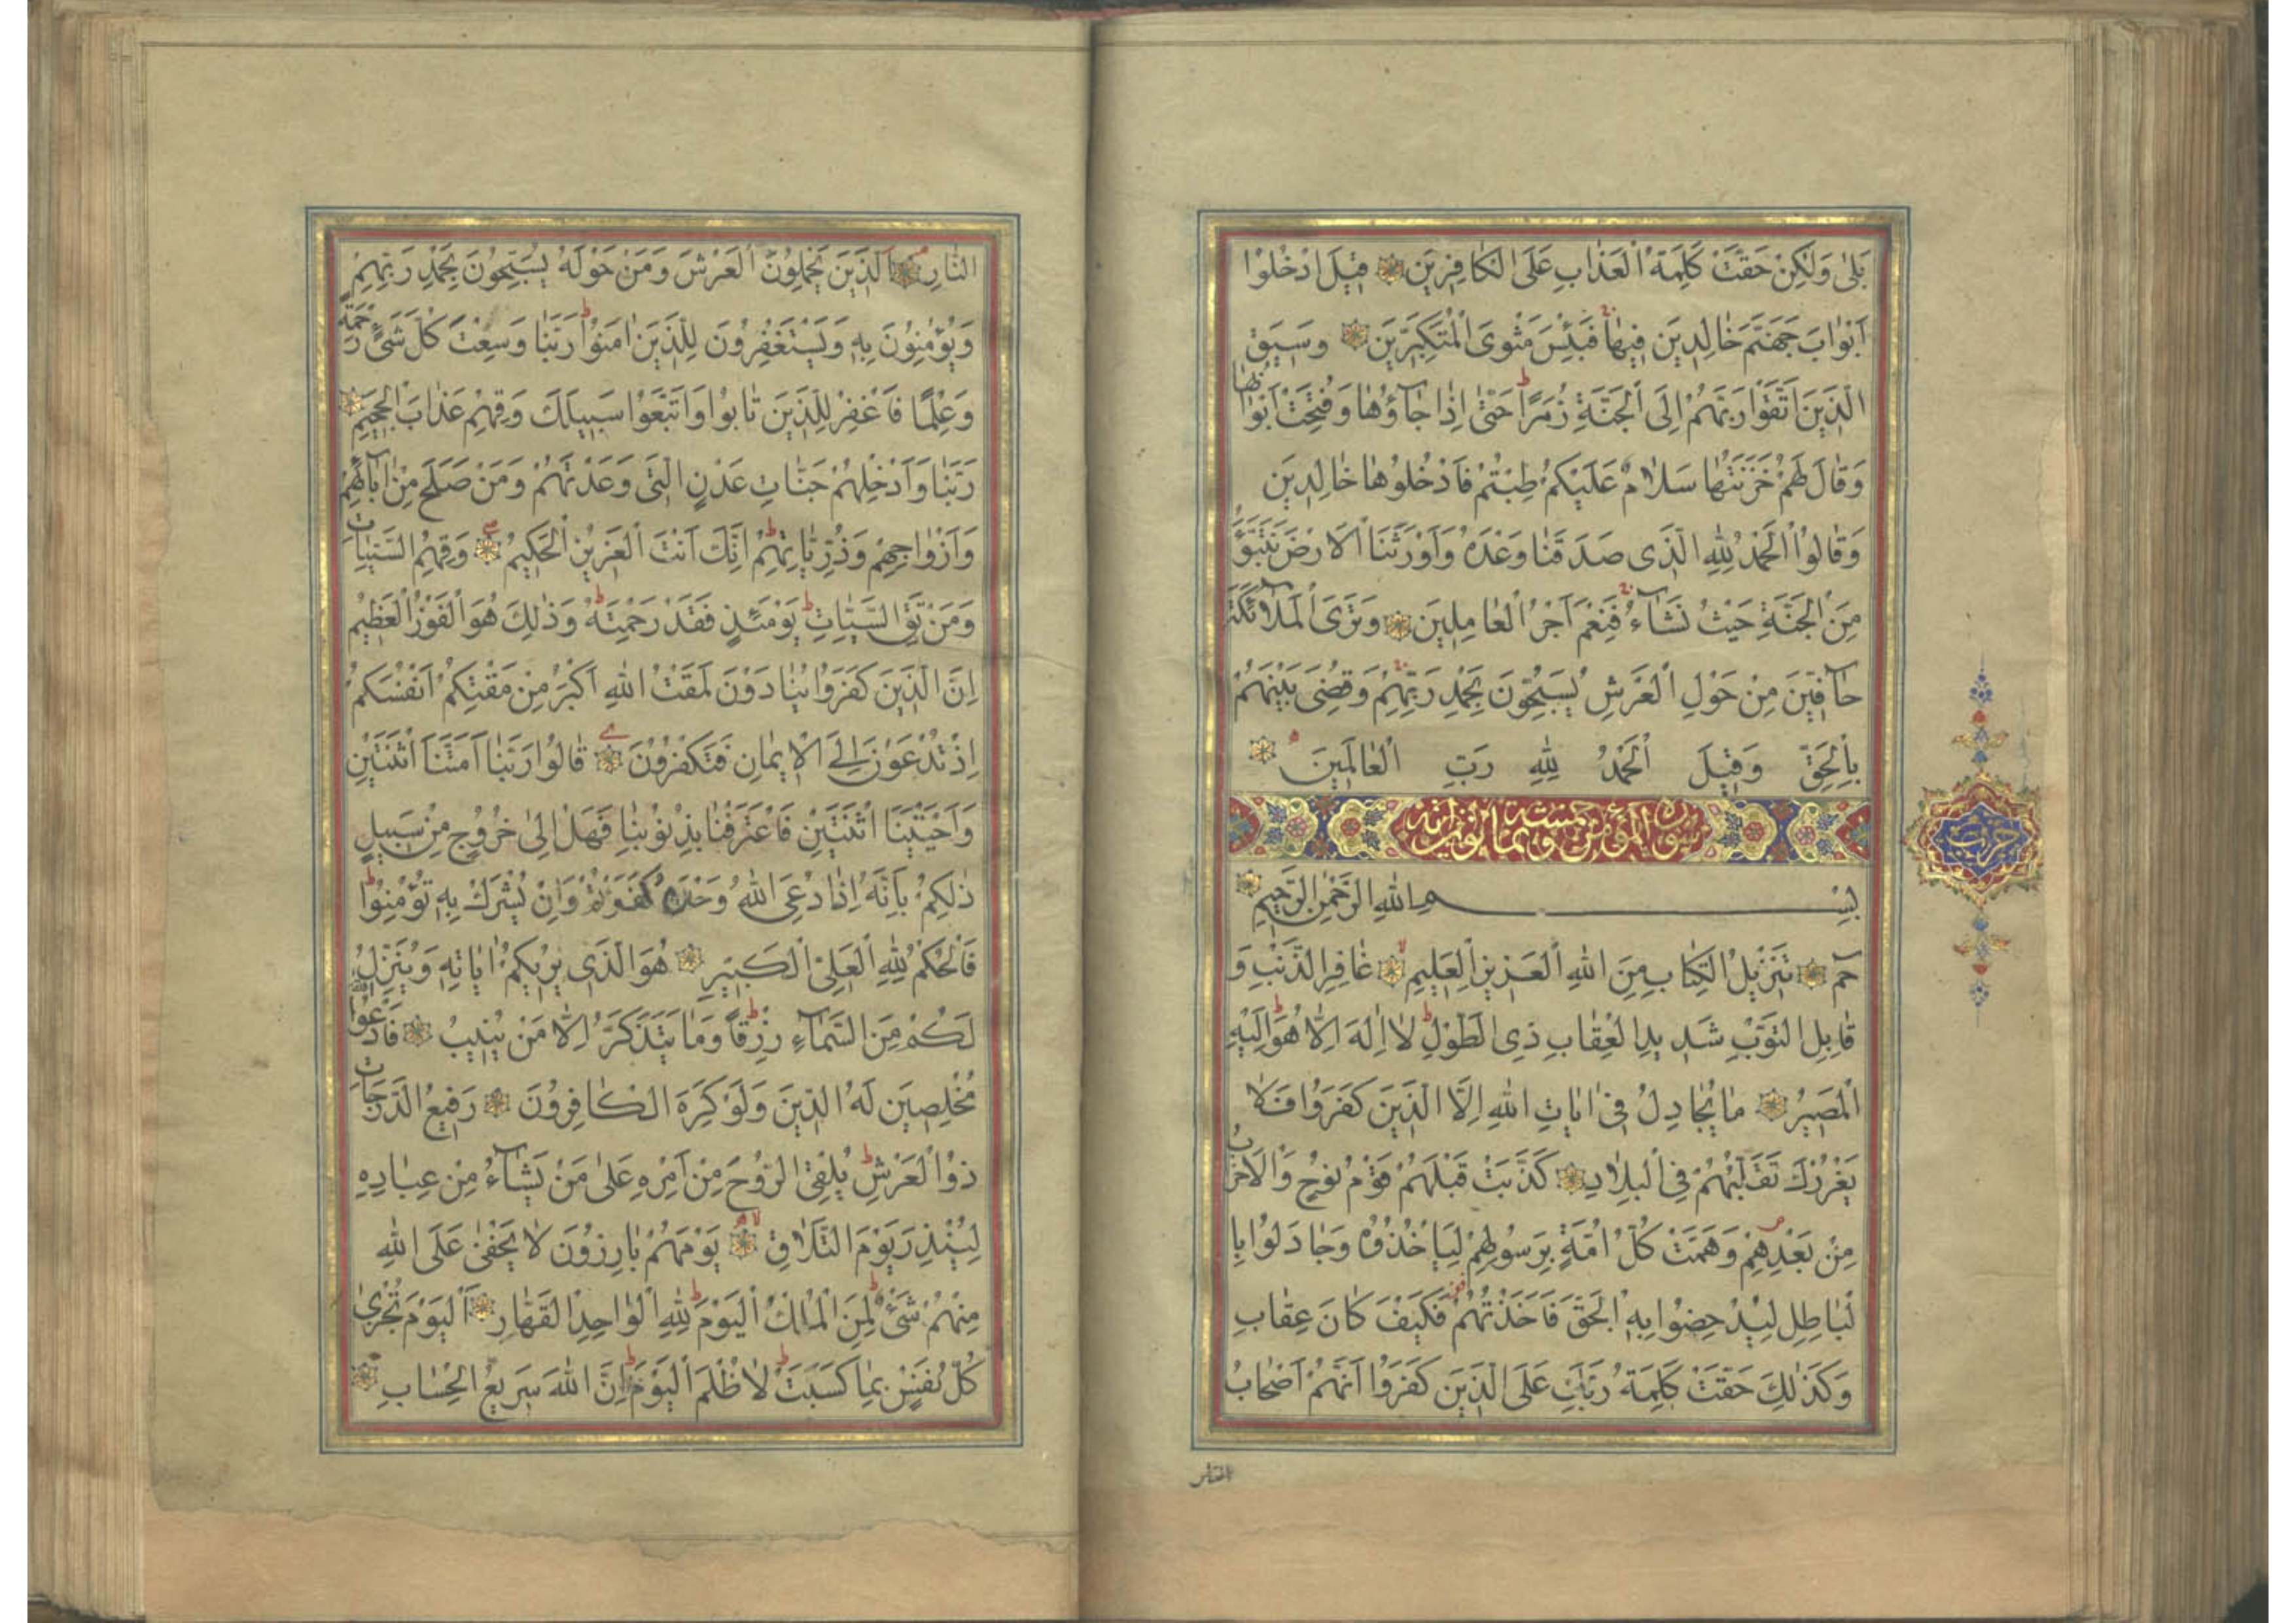 بَلىٰ وَلٰكِنْ حَقَّتْ كَلِمَةُ الْعَذٰابِ عَلَى الْكٰافِرِينَ قِيلَ ادْخُلُوٓا
اَبْوٰابَ جَهَنَّمَ خٰالِدِينَ فِيهٰا فَبِئْسَ مَثْوَى الْمُتَكَبِّرِينَ وَسِيقَ
الَّذِينَ اتَّقَوْا رَبَّهُمْ اِلَى الْجَنَّةِ زُمَرًا حَتّٰى اِذٰا جٰآؤُهٰا وَفُتِحَتْ اَبْوٰابُهٰا
وَقٰالَ لَهُمْ خَزَنَتُهٰا سَلٰامٌ عَلَيْكُمْ طِبْتُمْ فَادْخُلُوهٰا خٰالِدِينَ
وَقٰالُوا الْحَمْدُ لِلّٰهِ الَّذِى صَدَقَنٰا وَعْدَهُ وَاَوْرَثَنَا الْاَرْضَ نَتَبَوَّءُ
مِنَ الْجَنَّةِ حَيْثُ نَشٰآءُ فَنِعْمَ اَجْرُ الْعٰامِلِينَ وَتَرَى الْمَلٰآئِكَةَ
حٰآفِّينَ مِنْ حَوْلِ الْعَرْشِ يُسَبِّحُونَ بِحَمْدِ رَبِّهِمْ وَقُضِىَ بَيْنَهُمْ
بِالْحَقِّ وَقِيلَ الْحَمْدُ لِلّٰهِ رَبِّ الْعٰالَمِينَ
سورة المؤمن
حزب
بِسْمِ اللّٰهِ الرَّحْمٰنِ الرَّحِيمِ
حٰمٓ تَنْزِيلُ الْكِتٰابِ مِنَ اللّٰهِ الْعَزِيزِ الْعَلِيمِ غٰافِرِ الذَّنْبِ وَ
قٰابِلِ التَّوْبِ شَدِيدِ الْعِقٰابِ ذِى الطَّوْلِ لٰا اِلٰهَ اِلّٰا هُوَ اِلَيْهِ
الْمَصِيرُ مٰا يُجٰادِلُ فِىٓ اٰيٰاتِ اللّٰهِ اِلَّا الَّذِينَ كَفَرُوا فَلٰا
يَغْرُرْكَ تَقَلُّبُهُمْ فِى الْبِلٰادِ كَذَّبَتْ قَبْلَهُمْ قَوْمُ نُوحٍ وَالْاَحْزٰابُ
مِنْ بَعْدِهِمْ وَهَمَّتْ كُلُّ اُمَّةٍ بِرَسُولِهِمْ لِيَاْخُذُوهُ وَجٰادَلُوا بِا
لْبٰاطِلِ لِيُدْحِضُوا بِهِ الْحَقَّ فَاَخَذْتُهُمْ فَكَيْفَ كٰانَ عِقٰابِ
وَكَذٰلِكَ حَقَّتْ كَلِمَةُ رَبِّكَ عَلَى الَّذِينَ كَفَرُوٓا اَنَّهُمْ اَصْحٰابُ
النار
النّٰارِ اَلَّذِينَ يَحْمِلُونَ الْعَرْشَ وَمَنْ حَوْلَهُ يُسَبِّحُونَ بِحَمْدِ رَبِّهِمْ
وَيُؤْمِنُونَ بِهِ وَيَسْتَغْفِرُونَ لِلَّذِينَ اٰمَنُوا رَبَّنٰا وَسِعْتَ كُلَّ شَىْءٍ رَحْمَةً
وَعِلْمًا فَاغْفِرْ لِلَّذِينَ تٰابُوا وَاتَّبَعُوا سَبِيلَكَ وَقِهِمْ عَذٰابَ الْجَحِيمِ
رَبَّنٰا وَاَدْخِلْهُمْ جَنّٰاتِ عَدْنٍ الَّتِى وَعَدْتَهُمْ وَمَنْ صَلَحَ مِنْ اٰبٰآئِهِمْ
وَاَزْوٰاجِهِمْ وَذُرِّيّٰاتِهِمْ اِنَّكَ اَنْتَ الْعَزِيزُ الْحَكِيمُ وَقِهِمُ السَّيِّئٰاتِ
وَمَنْ تَقِ السَّيِّئٰاتِ يَوْمَئِذٍ فَقَدْ رَحِمْتَهُ وَذٰلِكَ هُوَ الْفَوْزُ الْعَظِيمُ
اِنَّ الَّذِينَ كَفَرُوا يُنٰادَوْنَ لَمَقْتُ اللّٰهِ اَكْبَرُ مِنْ مَقْتِكُمْ اَنْفُسَكُمْ
اِذْ تُدْعَوْنَ اِلَى الْاِيمٰانِ فَتَكْفُرُونَ قٰالُوا رَبَّنٰا اَمَتَّنَا اثْنَتَيْنِ
وَاَحْيَيْتَنَا اثْنَتَيْنِ فَاعْتَرَفْنٰا بِذُنُوبِنٰا فَهَلْ اِلىٰ خُرُوجٍ مِنْ سَبِيلٍ
ذٰلِكُمْ بِاَنَّهُ اِذٰا دُعِىَ اللّٰهُ وَحْدَهُ كَفَرْتُمْ وَاِنْ يُشْرَكْ بِهِ تُؤْمِنُوا
فَالْحُكْمُ لِلّٰهِ الْعَلِىِّ الْكَبِيرِ هُوَ الَّذِى يُرِيكُمْ اٰيٰاتِهِ وَيُنَزِّلُ
لَكُمْ مِنَ السَّمٰآءِ رِزْقًا وَمٰا يَتَذَكَّرُ اِلّٰا مَنْ يُنِيبُ فَادْعُوا اللّٰهَ
مُخْلِصِينَ لَهُ الدِّينَ وَلَوْ كَرِهَ الْكٰافِرُونَ رَفِيعُ الدَّرَجٰاتِ
ذُو الْعَرْشِ يُلْقِى الرُّوحَ مِنْ اَمْرِهِ عَلىٰ مَنْ يَشٰآءُ مِنْ عِبٰادِهِ
لِيُنْذِرَ يَوْمَ التَّلٰاقِ يَوْمَهُمْ بٰارِزُونَ لٰا يَخْفىٰ عَلَى اللّٰهِ
مِنْهُمْ شَىْءٌ لِمَنِ الْمُلْكُ الْيَوْمَ لِلّٰهِ الْوٰاحِدِ الْقَهّٰارِ اَلْيَوْمَ تُجْزىٰ
كُلُّ نَفْسٍ بِمٰا كَسَبَتْ لٰا ظُلْمَ الْيَوْمَ اِنَّ اللّٰهَ سَرِيعُ الْحِسٰابِ